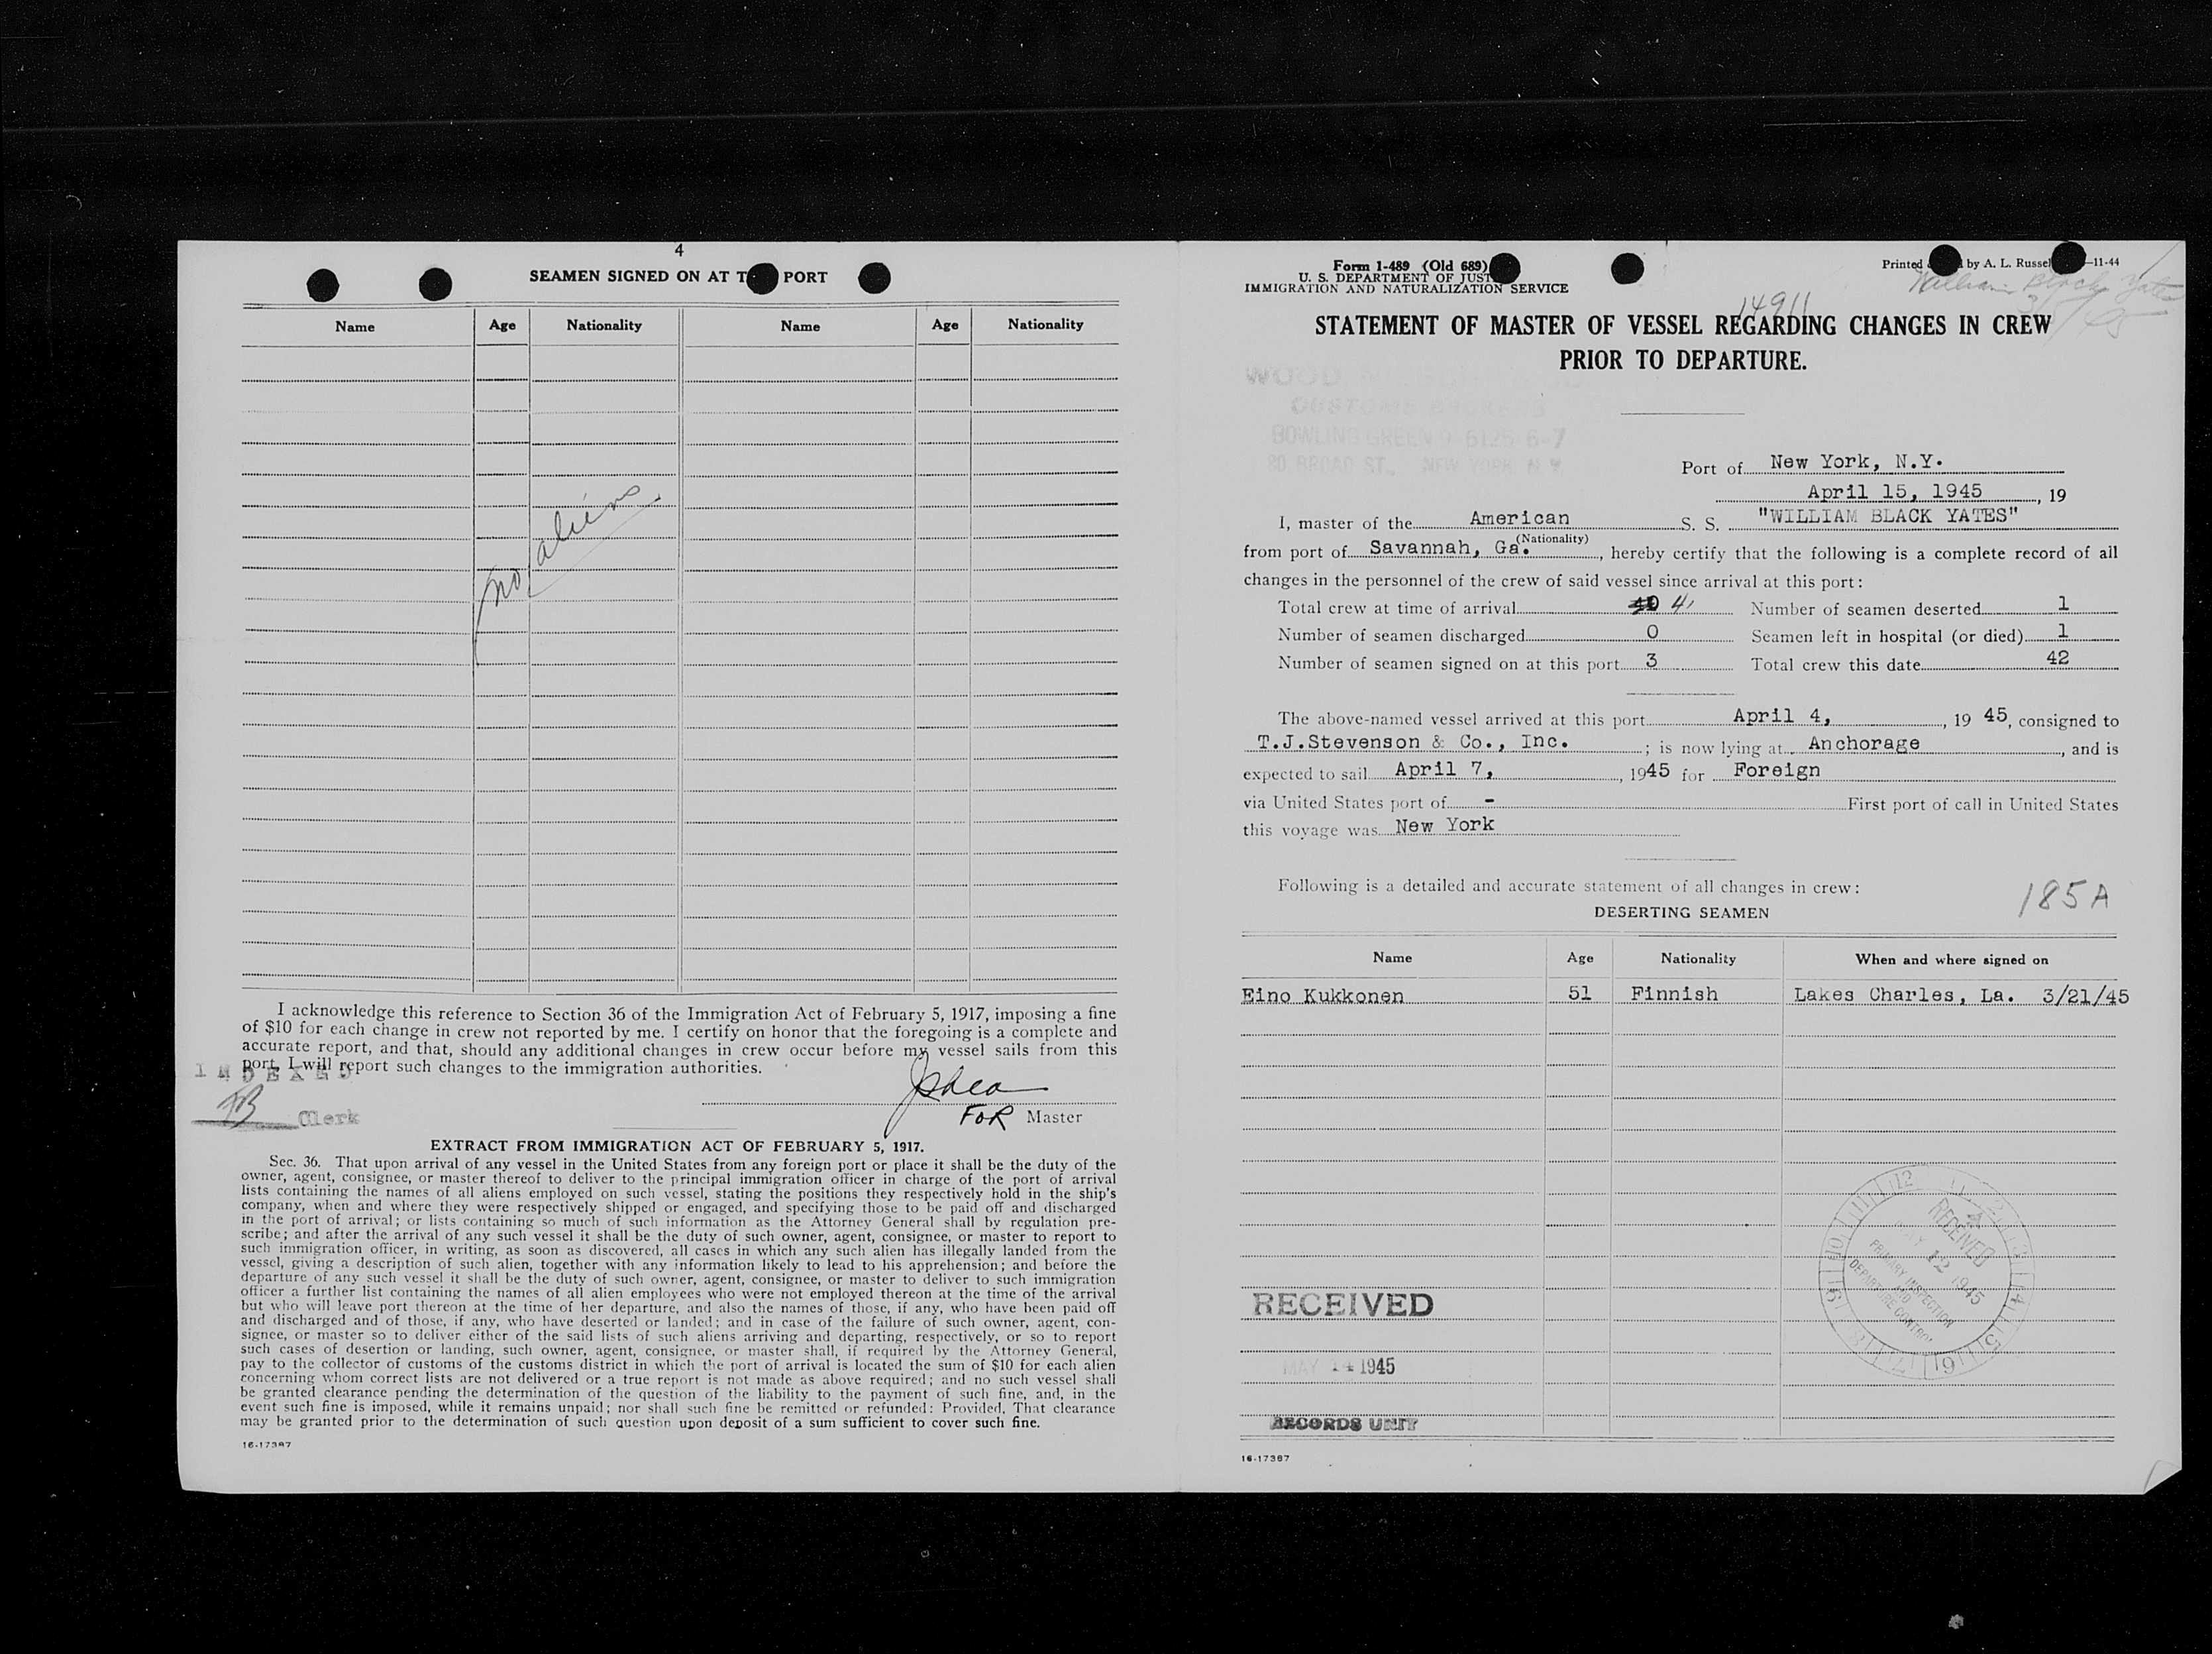 4
SEAMEN SIGNED ON AT T PORT
Name Age Nationality Name Age Nationality
no aliens
I acknowledge this reference to Section 36 of the Immigration Act of February 5, 1917, imposing a fine
of $10 for each change in crew not reported by me. I certify on honor that the foregoing is a complete and
accurate report, and that, should any additional changes in crew occur before my vessel sails from this
port, I will report such changes to the immigration authorities.
INDEXED
Clerk
FOR Master
EXTRACT FROM IMMIGRATION ACT OF FEBRUARY 5, 1917.
Sec. 36. That upon arrival of any vessel in the United States from any foreign port or place it shall be the duty of the
owner, agent, consignee, or master thereof to deliver to the principal immigration officer in charge of the port of arrival
lists containing the names of all aliens employed on such vessel, stating the positions they respectively hold in the ship's
company, when and where they were respectively shipped or engaged, and specifying those to be paid off and discharged
in the port of arrival; or lists containing so much of such information as the Attorney General shall by regulation pre-
scribe; and after the arrival of any such vessel it shall be the duty of such owner, agent, consignee, or master to report to
such immigration officer, in writing, as soon as discovered, all cases in which any such alien has illegally landed from the
vessel, giving a description of such alien, together with any information likely to lead to his apprehension; and before the
departure of any such vessel it shall be the duty of such owner, agent, consignee, or master to deliver to such immigration
officer a further list containing the names of all alien employees who were not employed thereon at the time of the arrival
but who will leave port thereon at the time of her departure, and also the names of those, if any, who have been paid off
and discharged and of those, if any, who have deserted or landed; and in case of the failure of such owner, agent, con-
signee, or master so to deliver either of the said lists of such aliens arriving and departing, respectively, or so to report
such cases of desertion or landing, such owner, agent, consignee, or master shall, if required by the Attorney General,
pay to the collector of customs of the customs district in which the port of arrival is located the sum of $10 for each alien
concerning whom correct lists are not delivered or a true report is not made as above required; and no such vessel shall
be granted clearance pending the determination of the question of the liability to the payment of such fine, and, in the
event such fine is imposed, while it remains unpaid; nor shall such fine be remitted or refunded: Provided, That clearance
may be granted prior to the determination of such question upon deposit of a sum sufficient to cover such fine.
16-17387
Form 1-489 (Old 689)
U. S. DEPARTMENT OF JUST
IMMIGRATION AND NATURALIZATION SERVICE
Printed by A. L. Russel -11-44
William Black Yates
14911
STATEMENT OF MASTER OF VESSEL REGARDING CHANGES IN CREW
PRIOR TO DEPARTURE.
WOOD
CUSTOMS BROKERS
BOWLING GREEN 9-6125-6-7
80 BROAD ST., NEW YORK N Y
Port of New York, N.Y.
April 15, 1945, 19
I, master of the American S. S. "WILLIAM BLACK YATES"
(Nationality)
from port of Savannah, Ga., hereby certify that the following is a complete record of all
changes in the personnel of the crew of said vessel since arrival at this port:
Total crew at time of arrival 40 41 Number of seamen deserted 1
Number of seamen discharged 0 Seamen left in hospital (or died) 1
Number of seamen signed on at this port 3 Total crew this date 42
The above-named vessel arrived at this port April 4, , 19 45, consigned to
T.J.Stevenson & Co., Inc. ; is now lying at Anchorage , and is
expected to sail April 7, , 1945 for Foreign
via United States port of - First port of call in United States
this voyage was New York
Following is a detailed and accurate statement of all changes in crew:
185A
DESERTING SEAMEN
Name Age Nationality When and where signed on
Eino Kukkonen 51 Finnish Lakes Charles, La. 3/21/45
RECEIVED
MAY 12 1945
PRIMARY INSPECTION
AND
DEPARTURE CONTROL
RECEIVED
MAY 14 1945
RECORDS UNIT
16-17387